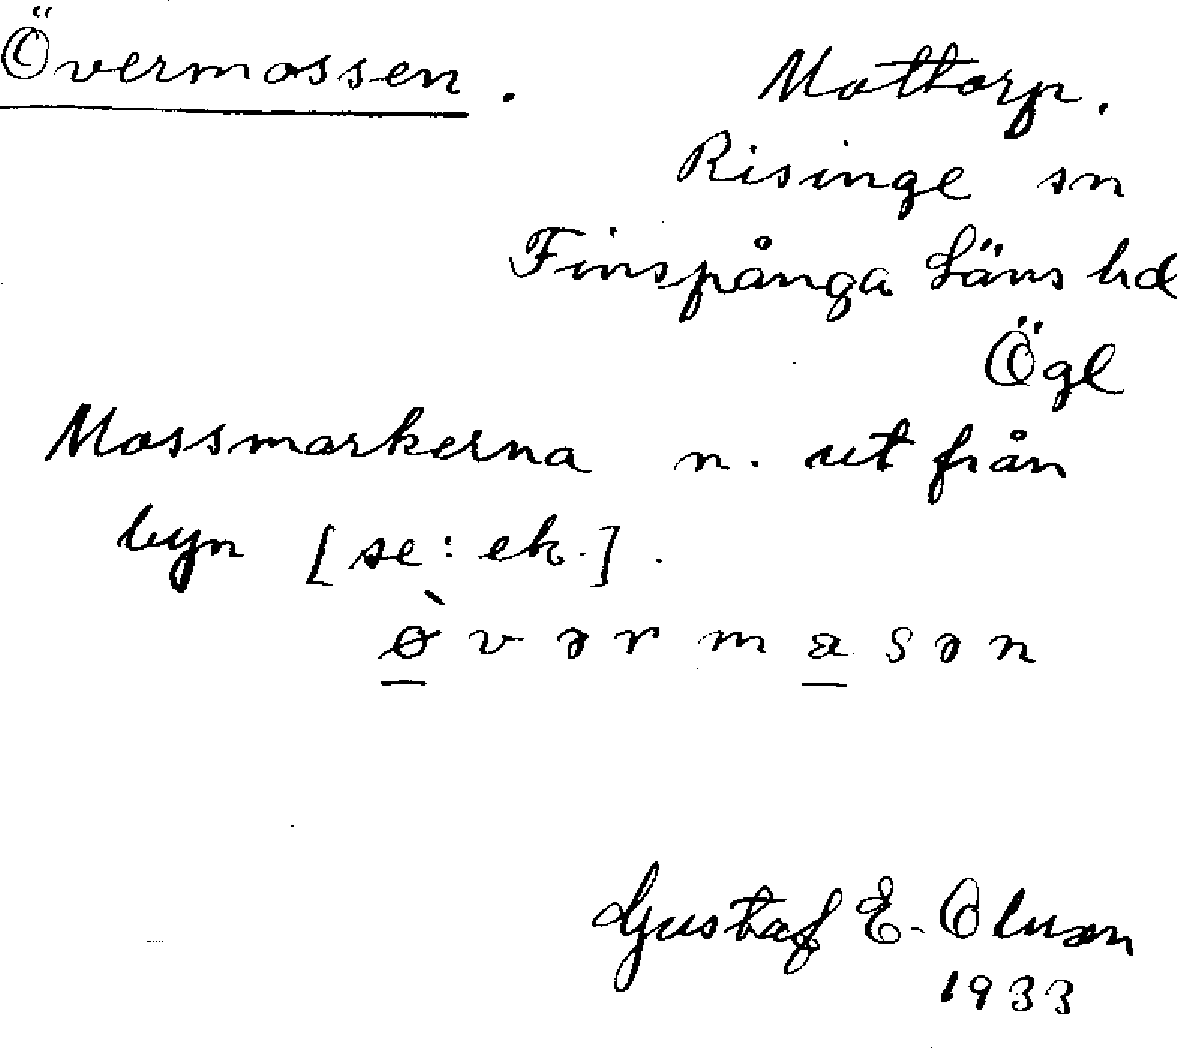 Övermossen.
Mottorp.
Risinge sn
Finspånga Läns hd
Ögl
Mossmarkerna n. ut från
byn [se: ek.].
ø̀vərmasən
Gustaf E. Olsson
1933